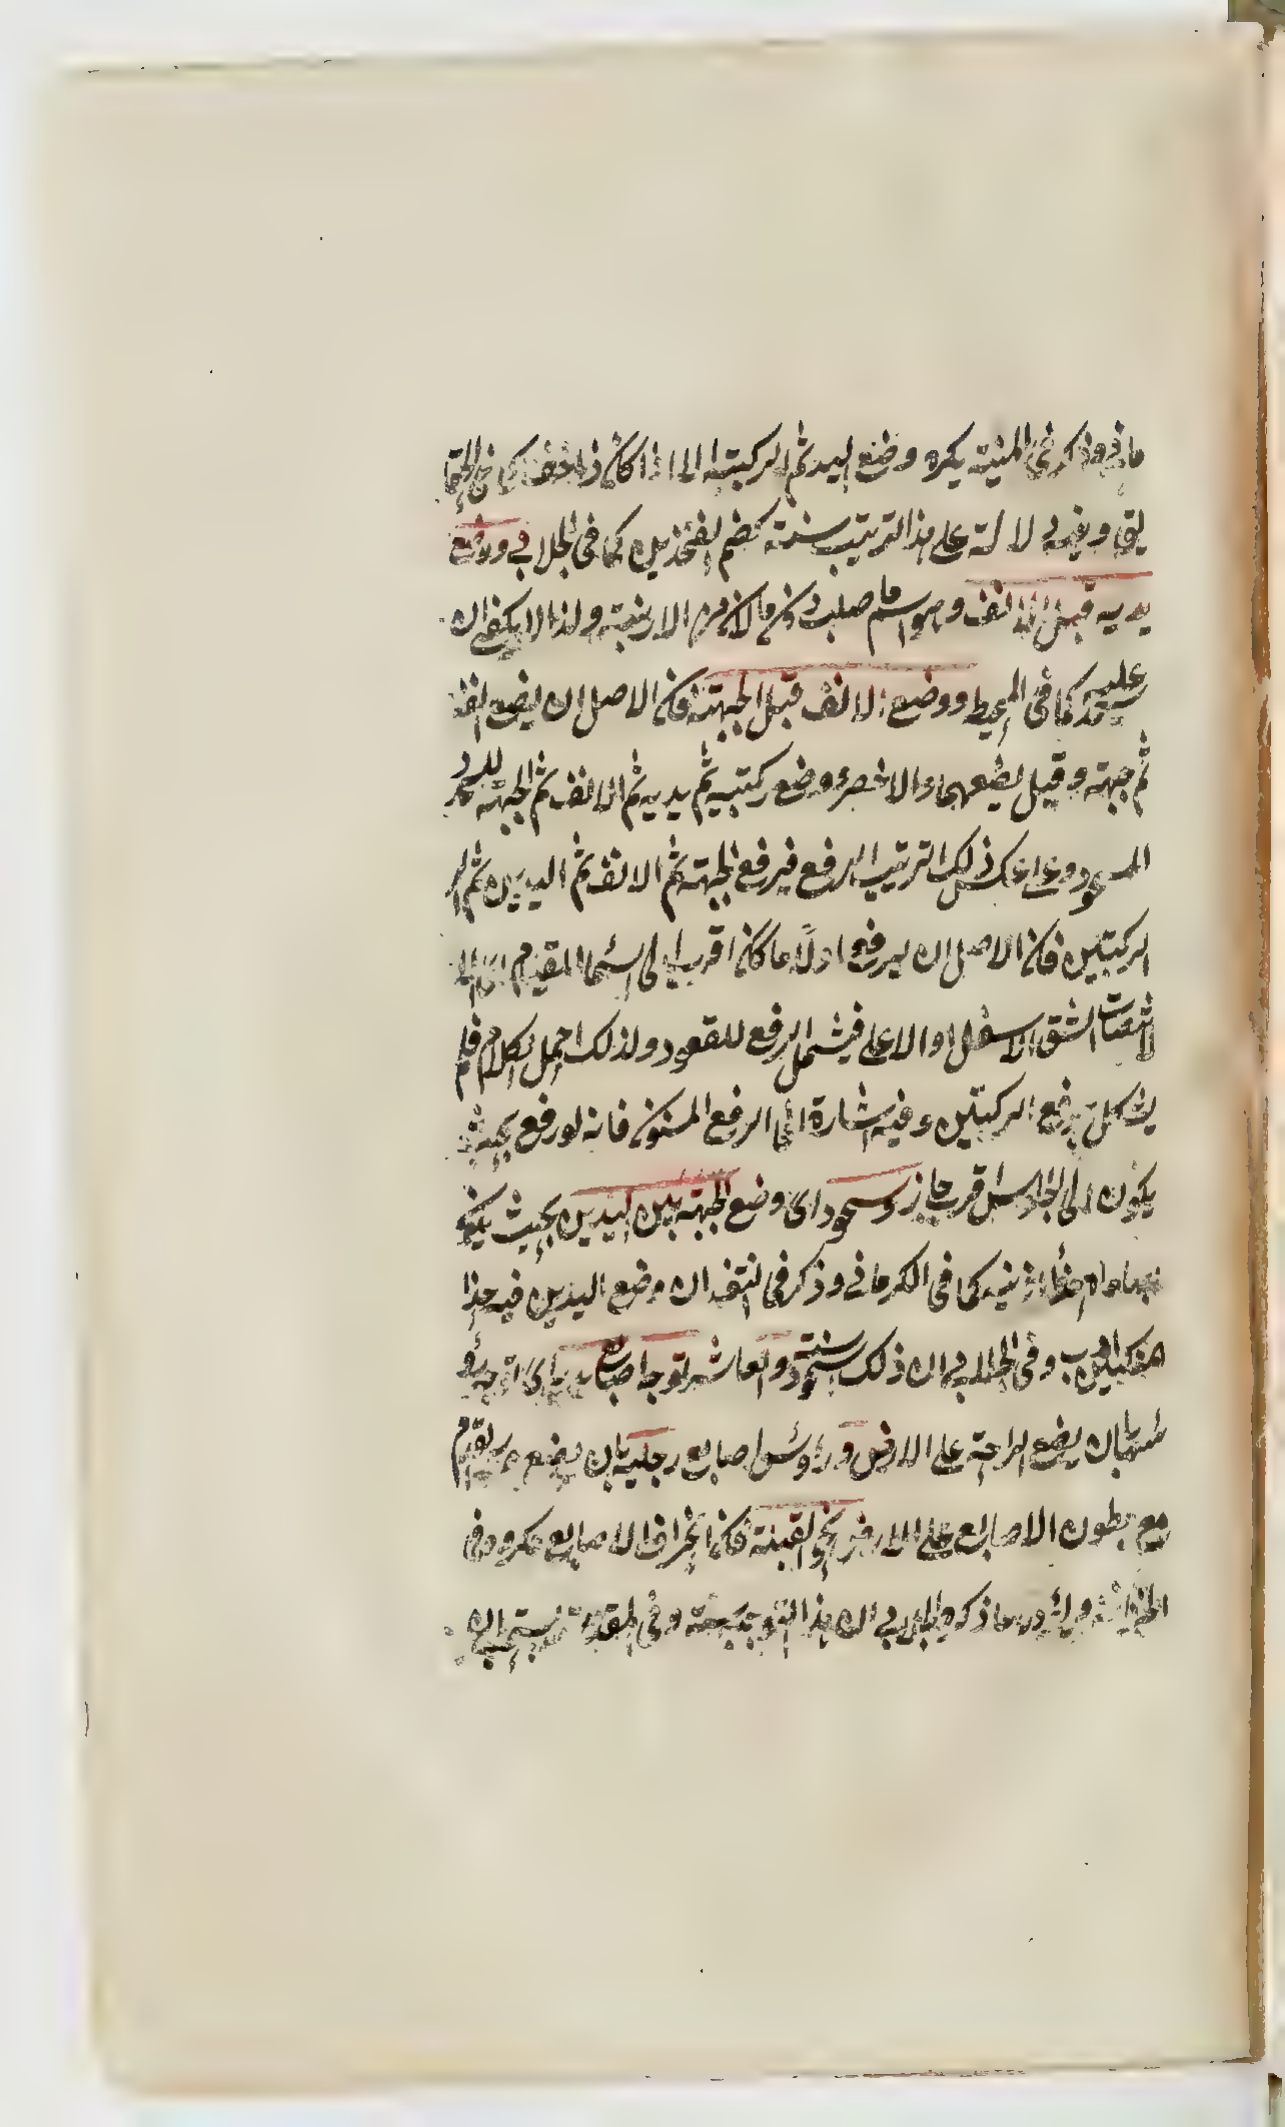 ما في وذكر في المنية يكره وضع اليد ثم الركبة الا اذا كان ذا خف كما في الحقا
يق وفيه دلالة على هذا الترتيب سنة كضم الفخذين كما في الجلابي ووضع
يديه قبل الانف وهو اسم ما صلب دون ما لان من الارنبة ولذا لا يكفى ان
يسجد عليه كما في المحيط ووضع الانف قبل الجبهة فان الاصل ان يضع انفه
ثم جبهته وقيل يضعهما والاخصر ووضع ركبتيه ثم يديه ثم الانف ثم الجبهة
السجود وعلى عكس ذلك الترتيب الرفع فيرفع الجبهة ثم الانف ثم اليدين ثم
الركبتين فان الاصل ان يرفع اولا ما كان اقرب الى السماء
الشق الاسفل او الاعلى فيشمل الرفع للقعود ولذلك اجمل الكلام فلم
يشكل برفع الركبتين وفيه اشارة الى الرفع المسنون فانه لو رفع بحيث
يكون الى الجلوس اقرب جاز وسجود اى وضع الجبهة بين اليدين بحيث يكون
ابهاماه حذاء اذنيه كما في الكرماني وذكر في النتف ان وضع اليدين فيه حذا
منكبيه وفي الجلابي ان ذلك سنة والعاشر توجه اصابع يديه اى
بان يضع الراحة على الارض ورؤس اصابع رجليه بان يضع
مع بطون الاصابع على الارض نحو القبلة فان انحراف الاصابع مكروه في
ما ذكره الجلابي ان هذا التوجه سنة وفي